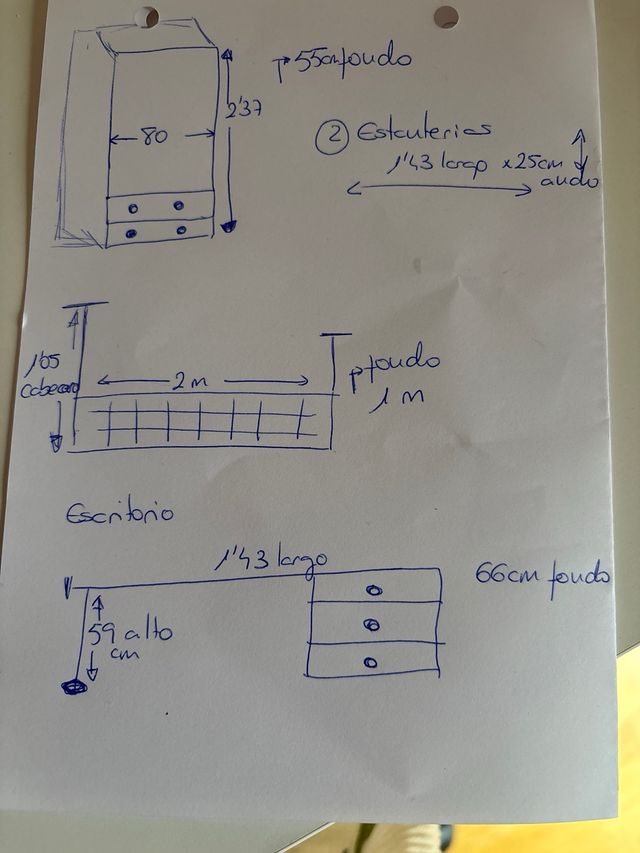 55cm fondo
2'37
80
② Estanterias
1'43 largo x 25cm
ancho
1'05
cabecero
2 m
fondo
1 m
Escritorio
1'43 largo
66cm fondo
59 alto
cm